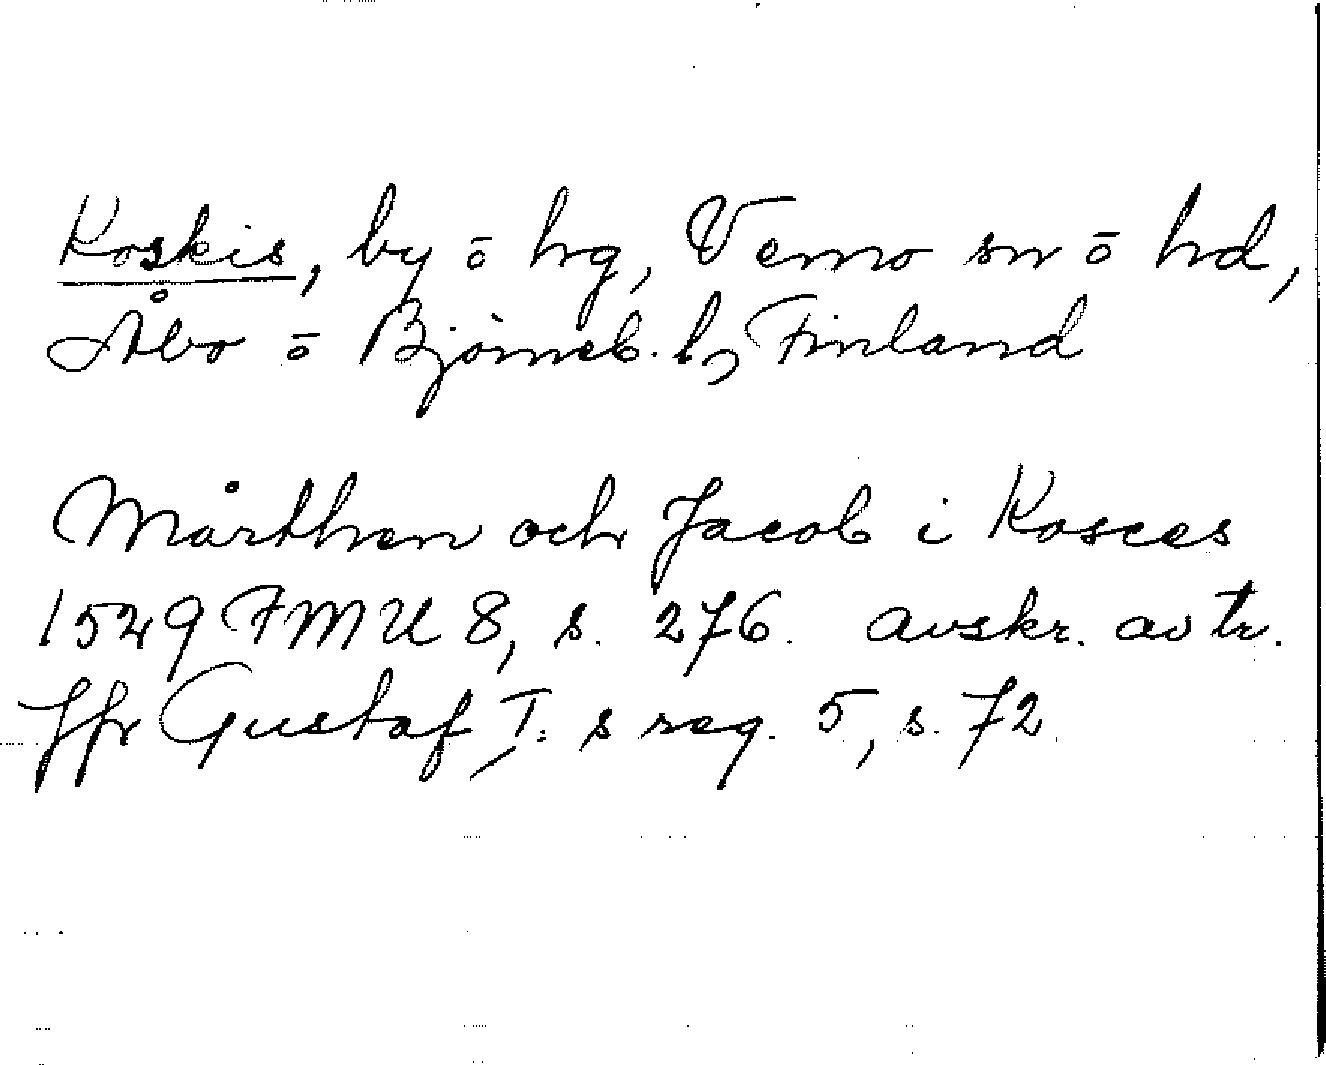 Koskis, by o hg, Vemo sn o hd,
Åbo o Björneb. l, Finland
Mårthen och Jacob i Kosces
1529 FMU 8, s. 276. avskr. av tr.
Jfr Gustaf I:s reg. 5, s. 72.